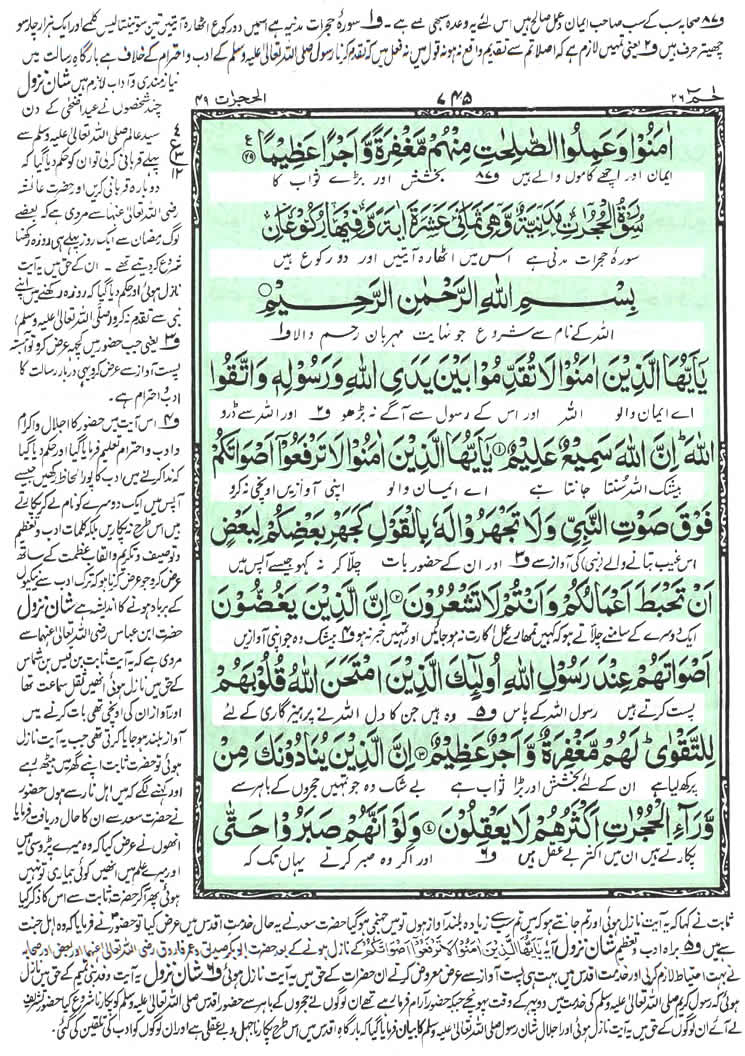 و۸۷ صحابہ سب کے سب صاحبِ ایمان وعملِ صالح ہیں اس لئے یہ وعدہ سبھی سے ہے۔ و۱ سورۂ حجرات مدنیہ ہے اسمیں دو رکوع اٹھارہ آیتیں تین سو تینتالیس کلمے اور ایک ہزار چار سو
چھہتر حرف ہیں و۲ یعنی تمہیں لازم ہے کہ اصلا تم سے تقدیم واقع نہ ہو نہ قول میں نہ فعل میں کہ تقدم کرنا رسول صلی اللہ تعالیٰ علیہ وسلم کے ادب و احترام کے خلاف ہے بارگاہِ رسالت میں
حٰمٓ ۲۶
۷۴۵
الحجرٰت ۴۹
نیازمندی و آداب لازم ہیں شانِ نزول
چند شخصوں نے عیدِ اضحٰی کے دن
سیدِ عالم صلی اللہ تعالیٰ علیہ وسلم سے
پہلے قربانی کرلی تو ان کو حکم دیا گیا کہ
دوبارہ قربانی کریں اور حضرت عائشہ
رضی اللہ تعالیٰ عنہا سے مروی ہے کہ بعضے
لوگ رمضان سے ایک روز پہلے ہی روزہ رکھنا
شروع کردیتے تھے۔ ان کے حق میں یہ آیت
نازل ہوئی اور حکم دیا گیا کہ روزہ رکھنے میں اپنے
نبی سے تقدم نہ کرو (صلی اللہ تعالیٰ علیہ وسلم)
و۳ یعنی جب حضور میں کچھ عرض کرو تو آہستہ
پست آواز سے عرض کرو یہی دربارِ رسالت کا
ادب و احترام ہے۔
و۴ اس آیت میں حضور کا اجلال و اکرام
و ادب و احترام تعلیم فرمایا گیا اور حکم دیا گیا
کہ ندا کرنے میں ادب کا پورا لحاظ رکھیں جیسے
آپس میں ایک دوسرے کو نام لے کر پکارتے
ہیں اس طرح نہ پکاریں بلکہ کلماتِ ادب و تعظیم
و توصیف و تکریم و القابِ عظمت کے ساتھ
عرض کرو جو عرض کرنا ہو کہ ترکِ ادب سے نیکیوں
کے برباد ہونے کا اندیشہ ہے شانِ نزول
حضرت ابن عباس رضی اللہ تعالیٰ عنہما سے
مروی ہے کہ یہ آیت ثابت بن قیس بن شماس
کے حق میں نازل ہوئی انھیں ثقلِ سماعت تھا
اور آواز ان کی اونچی تھی بات کرنے میں
آواز بلند ہوجایا کرتی تھی جب یہ آیت نازل
ہوئی تو حضرت ثابت اپنے گھر میں بیٹھ رہے
اور کہنے لگے کہ میں اہلِ نار سے ہوں حضور
نے حضرت سعد سے ان کا حال دریافت فرمایا
انھوں نے عرض کیا کہ وہ میرے پڑوسی ہیں
اور میرے علم میں انھیں کوئی بیماری تو نہیں
ہوئی پھر آکر حضرت ثابت سے اس کا ذکر کیا
۴
ع
۳
۱۲
اٰمَنُوْا وَعَمِلُوا الصّٰلِحٰتِ مِنْهُمْ مَّغْفِرَةً وَّاَجْرًا عَظِيْمًا ۲۹
ایمان اور اچھے کاموں والے ہیں و۸۷ بخشش اور بڑے ثواب کا
سُوْرَةُ الْحُجُرٰتِ مَدَنِيَّةٌ وَّهِيَ ثَمَانِيَ عَشَرَةَ اٰيَةً وَّفِيْهَا رُكُوْعَانِ
سورۂ حجرات مدنی ہے اس میں اٹھارہ آیتیں اور دو رکوع ہیں
بِسْمِ اللّٰهِ الرَّحْمٰنِ الرَّحِيْمِ
اللہ کے نام سے شروع جو نہایت مہربان رحم والا و۱
يٰٓاَيُّهَا الَّذِيْنَ اٰمَنُوْا لَا تُقَدِّمُوْا بَيْنَ يَدَيِ اللّٰهِ وَرَسُوْلِهٖ وَاتَّقُوا
اے ایمان والو اللہ اور اس کے رسول سے آگے نہ بڑھو و۲ اور اللہ سے ڈرو
اللّٰهَ ؕ اِنَّ اللّٰهَ سَمِيْعٌ عَلِيْمٌ ۱ يٰٓاَيُّهَا الَّذِيْنَ اٰمَنُوْا لَا تَرْفَعُوْٓا اَصْوَاتَكُمْ
بیشک اللہ سُنتا جانتا ہے اے ایمان والو اپنی آوازیں اونچی نہ کرو
فَوْقَ صَوْتِ النَّبِيِّ وَلَا تَجْهَرُوْا لَهٗ بِالْقَوْلِ كَجَهْرِ بَعْضِكُمْ لِبَعْضٍ
اس غیب بتانے والے (نبی) کی آواز سے و۳ اور ان کے حضور بات چلّا کر نہ کہو جیسے آپس میں
اَنْ تَحْبَطَ اَعْمَالُكُمْ وَاَنْتُمْ لَا تَشْعُرُوْنَ ۲ اِنَّ الَّذِيْنَ يَغُضُّوْنَ
ایک دوسرے کے سامنے چلّاتے ہو کہ کہیں تمھارے عمل اکارت نہ ہوجائیں اور تمہیں خبر نہ ہو و۴ بیشک وہ جو اپنی آوازیں
اَصْوَاتَهُمْ عِنْدَ رَسُوْلِ اللّٰهِ اُولٰٓئِكَ الَّذِيْنَ امْتَحَنَ اللّٰهُ قُلُوْبَهُمْ
پست کرتے ہیں رسول اللہ کے پاس و۵ وہ ہیں جن کا دل اللہ نے پرہیزگاری کے لئے
لِلتَّقْوٰى ؕ لَهُمْ مَّغْفِرَةٌ وَّاَجْرٌ عَظِيْمٌ ۳ اِنَّ الَّذِيْنَ يُنَادُوْنَكَ مِنْ
پرکھ لیا ہے ان کے لئے بخشش اور بڑا ثواب ہے بے شک وہ جو تمہیں حجروں کے باہر سے
وَّرَآءِ الْحُجُرٰتِ اَكْثَرُهُمْ لَا يَعْقِلُوْنَ ۴ وَلَوْ اَنَّهُمْ صَبَرُوْا حَتّٰى
پکارتے ہیں ان میں اکثر بے عقل ہیں و۶ اور اگر وہ صبر کرتے یہاں تک کہ
ثابت نے کہا کہ یہ آیت نازل ہوئی اور تم جانتے ہو کہ میں تم سب سے زیادہ بلند آواز ہوں تو میں جہنمی ہوگیا حضرت سعد نے یہ حال خدمتِ اقدس میں عرض کیا تو حضور نے فرمایا کہ وہ اہلِ جنت
سے ہیں و۵ براہِ ادب و تعظیم شانِ نزول آیہ یٰٓاَیُّهَا الَّذِیْنَ اٰمَنُوْا لَا تَرْفَعُوْٓا اَصْوَاتَكُمْ کے نازل ہونے کے بعد حضرت ابوبکر صدیق و عمر فاروق رضی اللہ تعالیٰ عنہما اور بعض اور صحابہ
نے بہت احتیاط لازم کرلی اور خدمتِ اقدس میں بہت ہی پست آواز سے عرض معروض کرتے ان حضرات کے حق میں یہ آیت نازل ہوئی و۶ شانِ نزول یہ آیت وفدِ بنی تمیم کے حق میں نازل
ہوئی کہ رسولِ کریم صلی اللہ تعالیٰ علیہ وسلم کی خدمت میں دوپہر کے وقت پہونچے جبکہ حضور آرام فرما رہے تھے ان لوگوں نے حجروں کے باہر سے حضورِ اقدس صلی اللہ تعالیٰ علیہ وسلم کو پکارنا شروع کیا حضور تشریف
لے آئے ان لوگوں کے حق میں یہ آیت نازل ہوئی اور اجلالِ شانِ رسول صلی اللہ تعالیٰ علیہ وسلم کا بیان فرمایا گیا کہ بارگاہِ اقدس میں اس طرح پکارنا جہل و بے عقلی ہے اور ان لوگوں کو ادب کی تلقین کی گئی۔